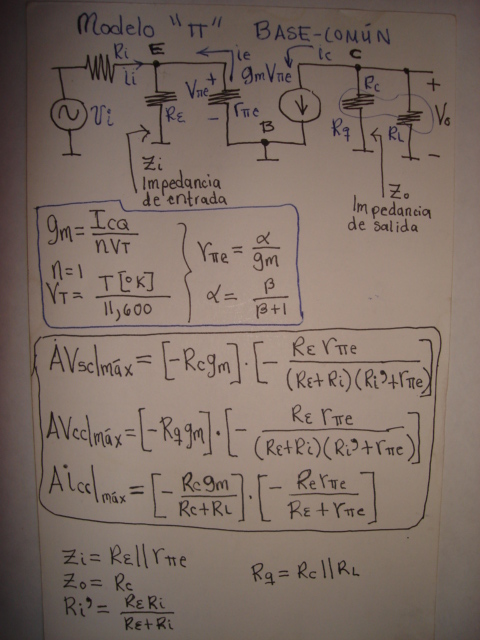 Modelo "π" BASE-COMÚN
Ri E ie ic C
ii Vπe + gmVπe Rc +
Vi RE - rπe Rq RL Vo
B -
Zi Zo
Impedancia de entrada Impedancia de salida
gm = ICQ / nVT
n=1
VT = T[°K] / 11,600
rπe = α / gm
α = β / β+1
AVsc|máx = [-Rcgm]·[- RE rπe / (RE+Ri)(Ri'+rπe)]
AVcc|máx = [-Rqgm]·[- RE rπe / (RE+Ri)(Ri'+rπe)]
Aicc|máx = [- Rcgm / Rc+RL]·[- Rerπe / RE+rπe]
Zi = RE||rπe
Zo = Rc Rq = Rc||RL
Ri' = RERi / RE+Ri